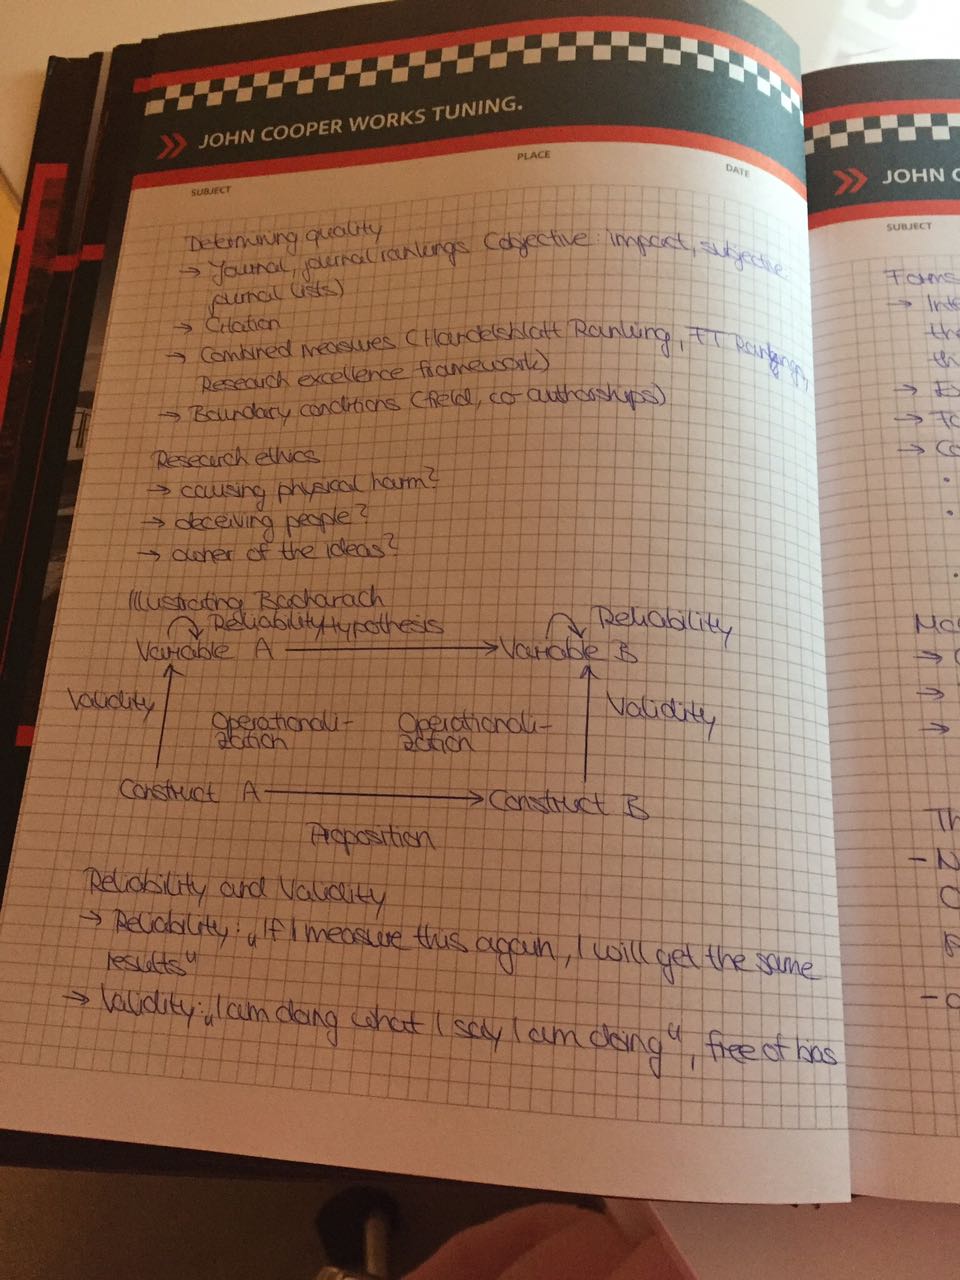 JOHN COOPER WORKS TUNING.
SUBJECT PLACE DATE
Determining quality
→ Journal, journal rankings (objective: impact, subjective:
journal lists)
→ Citation
→ Combined measures (Handelsblatt Ranking, FT Ranking,
Research excellence framework)
→ Boundary conditions (field, co-authorships)
Research ethics
→ causing physical harm?
→ deceiving people?
→ owner of the ideas?
Illustrating Bacharach
Reliability Hypothesis Reliability
Variable A → Variable B
Validity Validity
Operationali- Operationali-
zation zation
Construct A → Construct B
Proposition
Reliability and Validity
→ Reliability: „If I measure this again, I will get the same
results“
→ Validity: „I am doing what I say I am doing“, free of bias
JOHN C
SUBJECT
Forms
→ Inte
the
th
→ E
→ Fo
→ Co
Mo
→
→
→
Th
- N
-